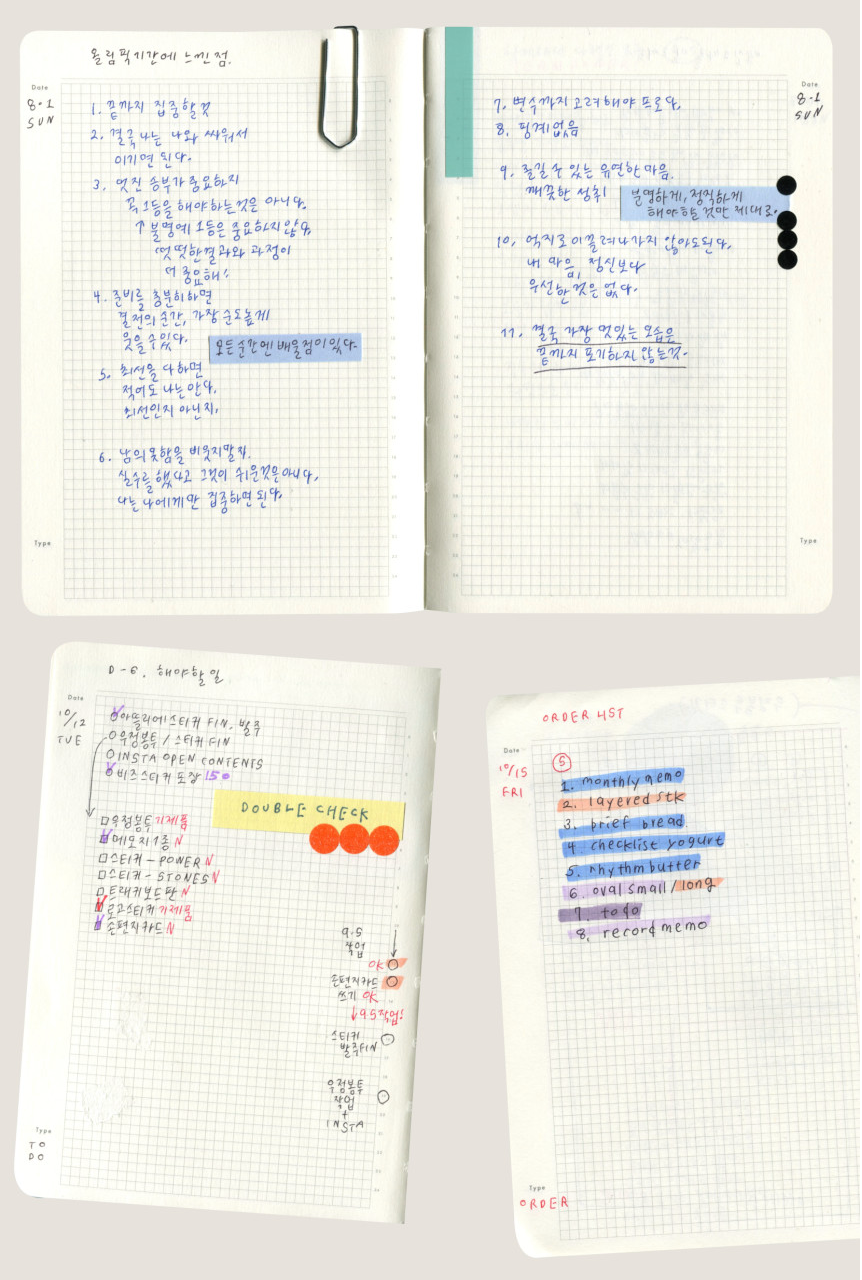 올림픽기간에 느낀점.
Date
8.1
SUN
1. 끝까지 집중할것
2. 결국 나는 나와 싸워서
이기면 된다.
3. 멋진 승부가 중요하지
꼭 1등을 해야하는것은 아니다.
↑ 불명예 1등은 중요하지 않다,
떳떳한결과와 과정이
더 중요해!
4. 준비를 충분히하면
결전의 순간, 가장 순도높게
웃을 수 있다.
모든순간에 배울점이있다.
5. 최선을 다하면
적어도 나는 안다.
최선인지 아닌지.
6. 남의 못함을 비웃지말자.
실수를 했다고 그것이 쉬운것은아니다,
나는 나에게만 집중하면 된다.
Type
Date
8.1
SUN
7. 변수까지 고려해야 프로다.
8. 핑계없음
9. 즐길 수 있는 유연한 마음.
깨끗한 성취
분명하게, 정직하게
해야할것만 제대로.
10. 억지로 이끌려나가지 않아도된다.
내 마음, 정신보다
우선한것은 없다.
11. 결국 가장 멋있는 모습은
끝까지 포기하지 않는것.
Type
D-6. 해야할일
Date
10/12
TUE
아뜰리에스티커 FIN. 발주
우정봉투 / 스티커 FIN
INSTA OPEN CONTENTS
비즈스티커 포장 150
DOUBLE CHECK
우정봉투 기제품
메모지 1종 N
스티커 - POWER N
스티커 - STONES N
트래커보드판 N
로고스티커 기제품
손편지카드 N
9.5
작업
OK
손편지카드
쓰기 OK
↓95작업!
스티커
발주FIN
우정봉투
작업
+
INSTA
Type
TO
DO
ORDER LIST
Date
10/15
FRI
5
1. monthly memo
2. layered stk
3. brief bread
4. checklist yogurt
5. rhythm butter
6. oval small / long
7. to do
8. record memo
Type
ORDER